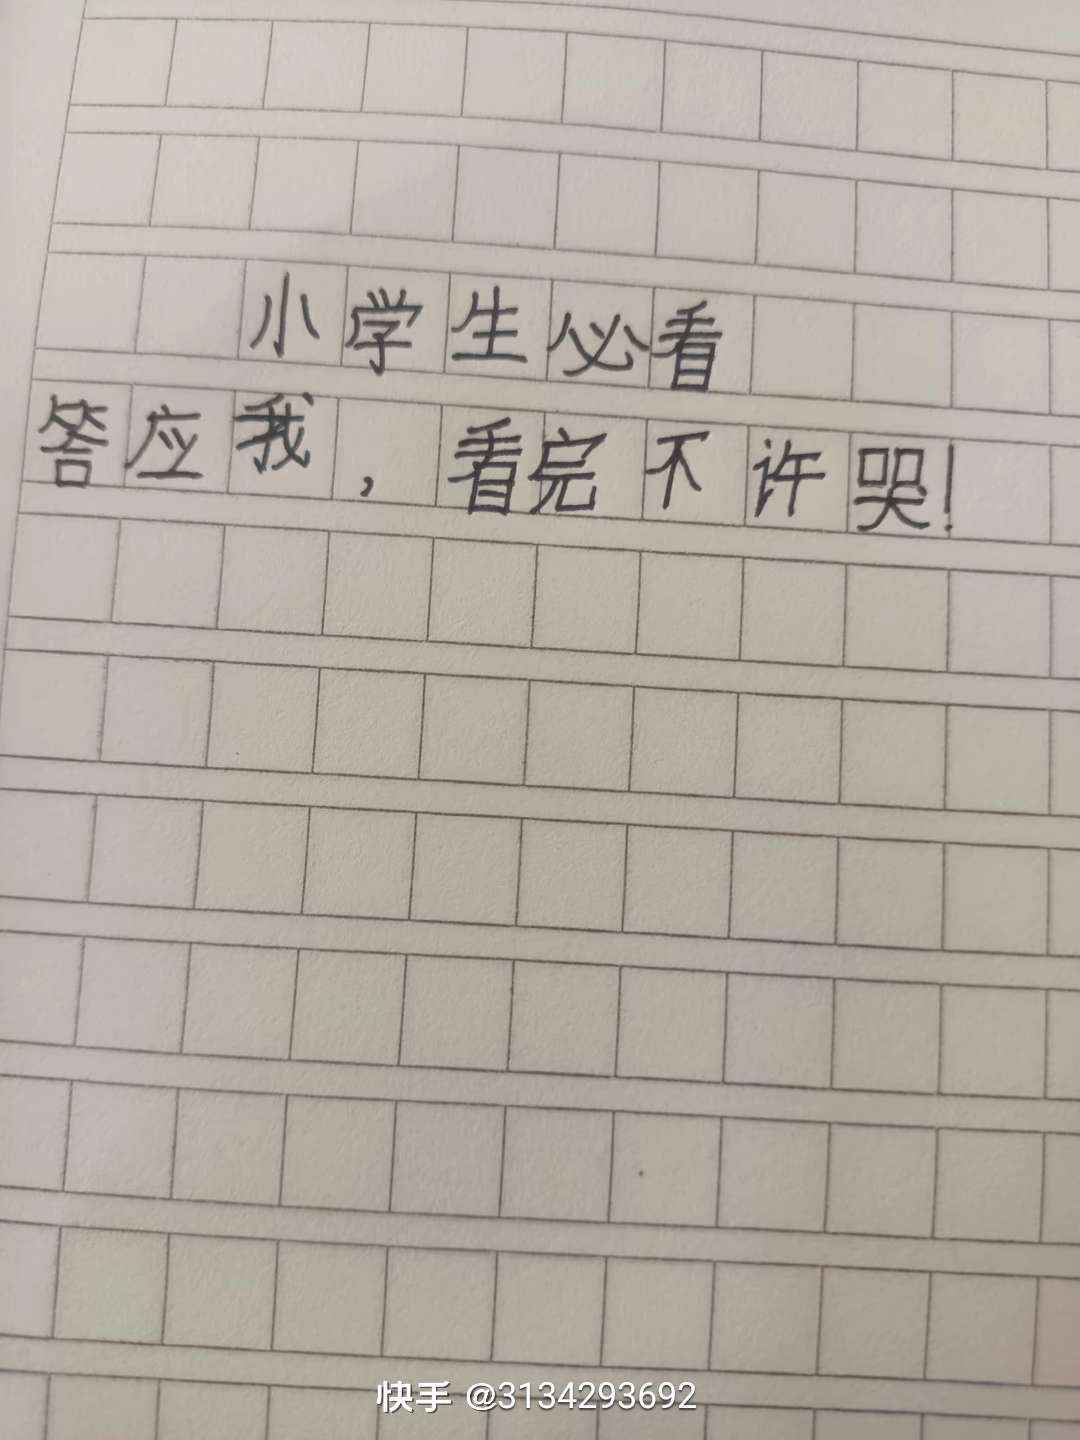 小学生必看
答应我，看完不许哭！
快手 @3134293692